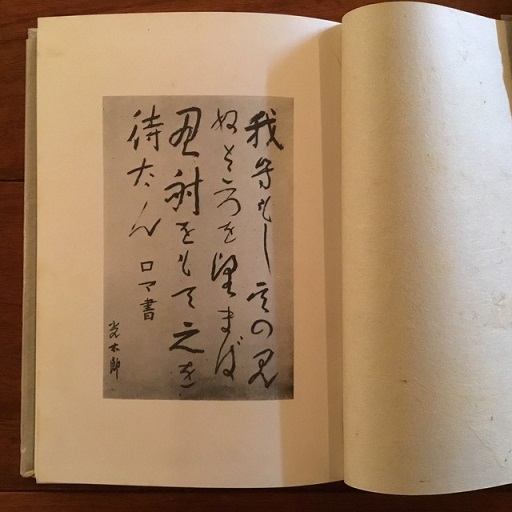 我等もし其の見
ぬところを望まば
忍耐をもて之を
待たん ロマ書
光太郎